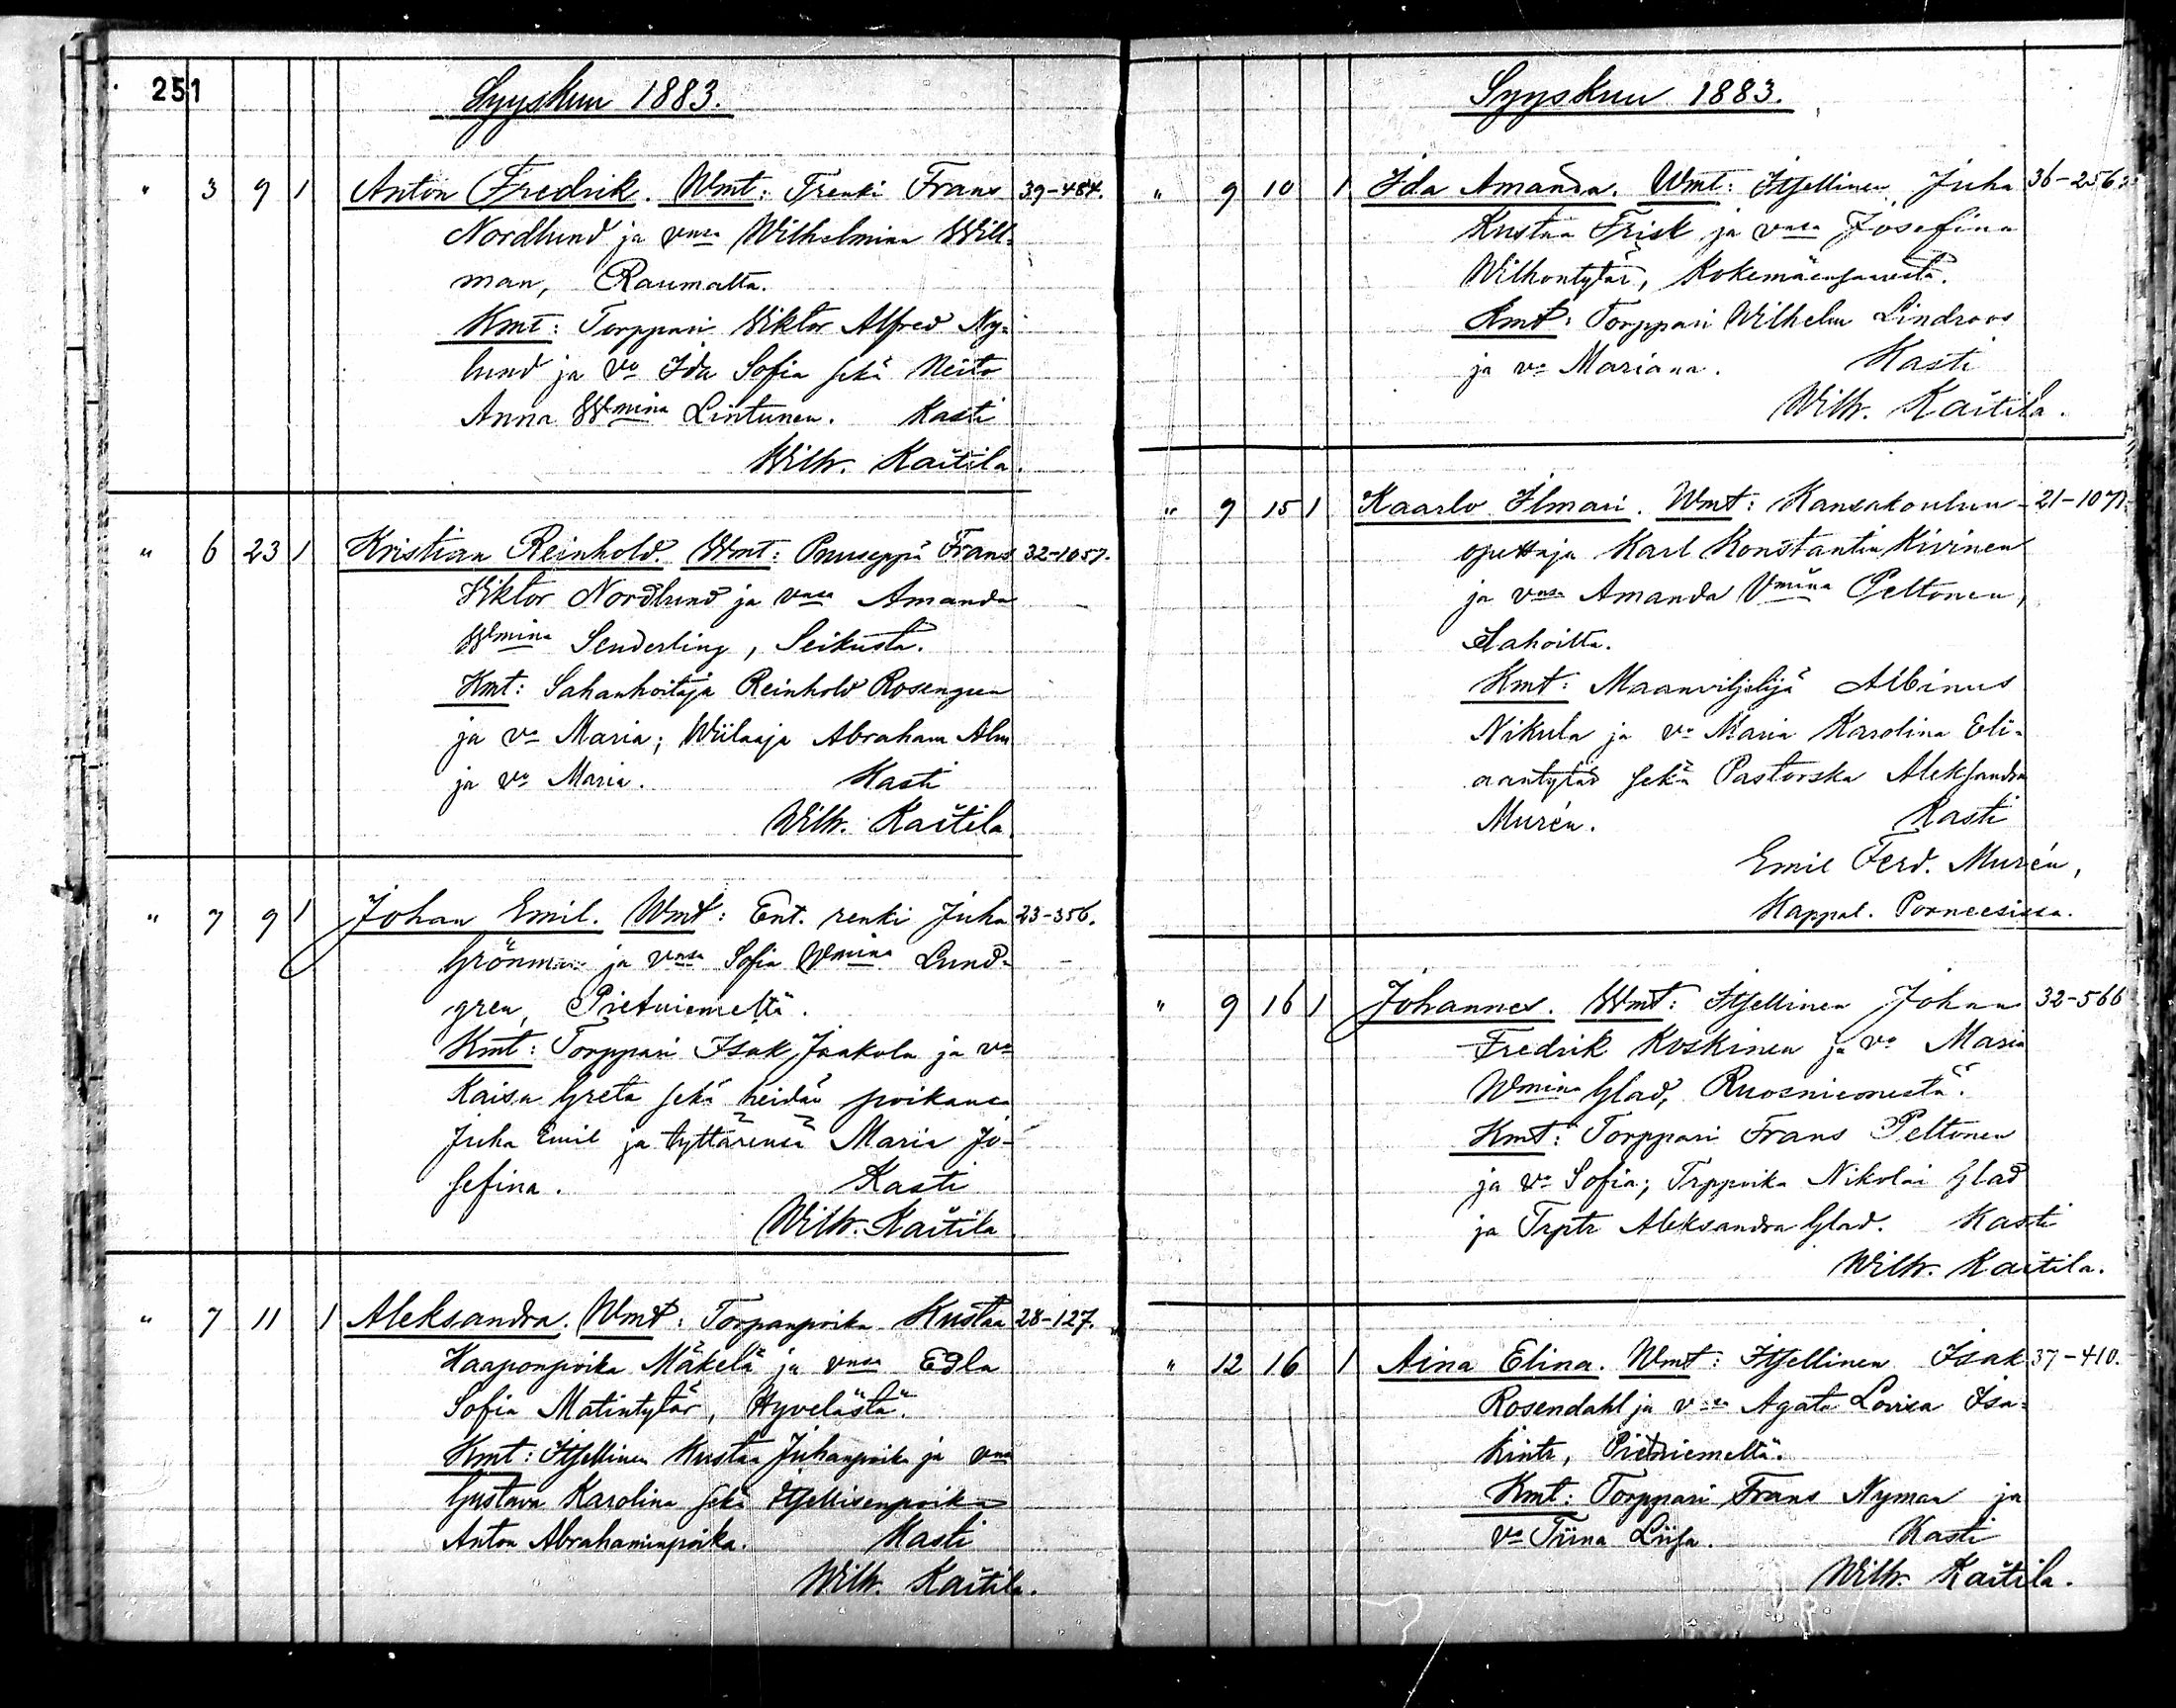 251
Syyskuu 1883.
" 3 9 1 Anton Fredrik. Wmt: Trenki Frans 39-484.
Nordlund ja vnsa Wilhelmina Will-
man, Raumalta.
Kmt: Torppari Viktor Alfred Ny-
lund ja vo Ida Sofia sekä Neito
Anna Wmina Lintunen. Kasti
Wilh. Kaitila.
" 6 23 1 Kristian Reinhold. Wmt: Puuseppä Frans 32-1057.
Viktor Nordlund ja vnsa Amanda
Wmina Senderling, Seikusta.
Kmt: Sahanhoitaja Reinhold Rosengren
ja vo Maria; Wiilaaja Abraham Alm
ja vo Maria. Kasti
Wilh. Kaitila.
" 7 9 1 Johan Emil. Wmt: Ent. renki Juha 23-356.
Grönman ja vnsa Sofia Wmina Lund-
gren, Pietniemeltä.
Kmt: Torppari Isak Jaakola ja vo
Kaisa Greta sekä heidän poikansa
Juha Emil ja tyttärensä Maria Jo-
sefina. Kasti
Wilh. Kaitila
" 7 11 1 Aleksandra. Wmt: Torpanpoika Kustaa 28-127.
Haaponpoika Mäkelä ja vnsa Edla
Sofia Matintytär, Hyvelästä.
Kmt: Itsellinen Kustaa Juhanpoika ja vnsa
Gustava Karolina sekä Itsellisenpoika
Anton Abrahaminpoika. Kasti
Wilh. Kaitila.
Syyskuu 1883.
" 9 10 1 Ida Amanda. Wmt: Itsellinen Juha 36-256
Kustaa Frisk ja vnsa Josefina
Wilhontytär, Kokemäensaaresta.
Kmt: Torppari Wilhelm Lindroos
ja vo Mariana. Kasti
Wilh. Kaitila.
" 9 15 1 Kaarlo Ilmari. Wmt: Kansakoulun- 21-1071.
opettaja Karl Konstantin Kivinen
ja vnsa Amanda Vmina Peltonen,
Lahoilta.
Kmt: Maanviljelijä Albinus
Nikula ja vo Maria Karolina Eli-
aantytär sekä Pastorska Aleksandra
Murén. Kasti
Emil Ferd. Murén,
Kappal. Porneesissa.
" 9 16 1 Johannes. Wmt: Itsellinen Johan 32-566
Fredrik Koskinen ja vo Maria
Wmina Glad, Ruosniemestä.
Kmt: Torppari Frans Peltonen
ja vo Sofia; Trppoika Nikolai Glad
ja Trptr Aleksandra Glad. Kasti
Wilh. Kaitila.
" 12 16 1 Aina Elina. Wmt: Itsellinen Isak 37-410.
Rosendahl ja vnsa Agata Lovisa Isa-
kintr, Pietniemeltä.
Kmt: Torppari Frans Nyman ja
vo Tiina Liisa. Kasti
Wilh. Kaitila.